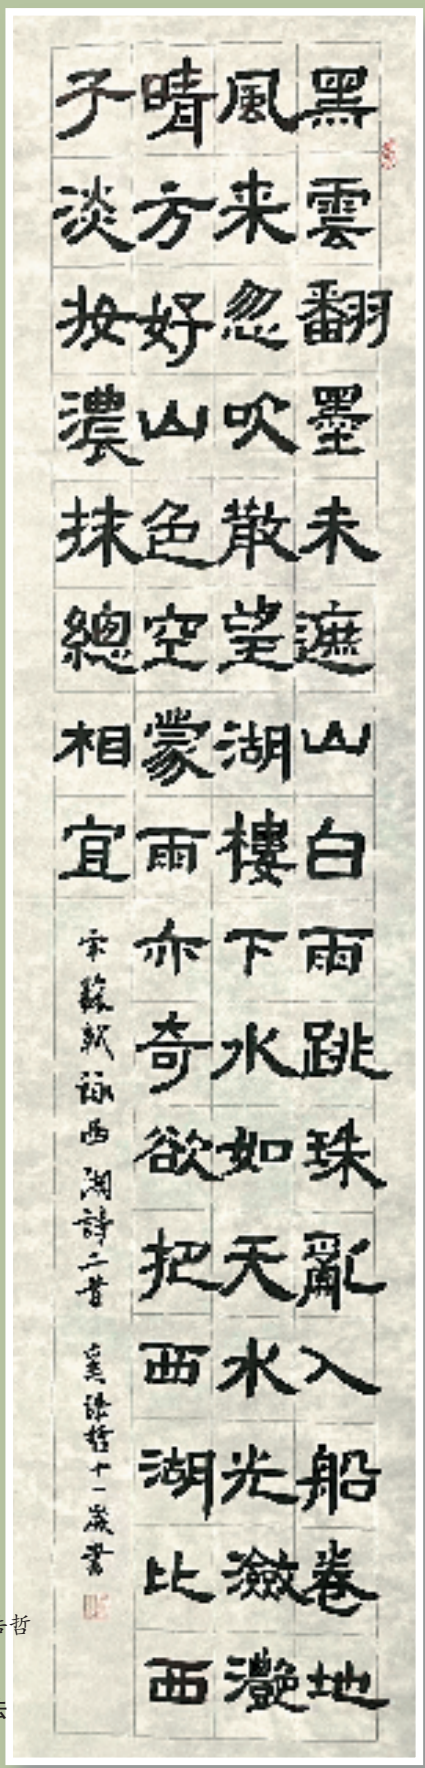 黑雲翻墨未遮山白雨跳珠亂入船卷地
風来忽吹散望湖樓下水如天水光瀲灩
晴方好山色空蒙雨亦奇欲把西湖比西
子淡妝濃抹總相宜
宋蘇軾詠西湖詩二首
哲十一歲書
哲